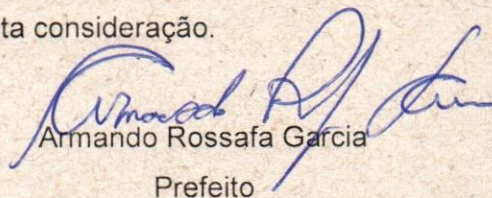 ta consideração.
Armando Rossafa Garcia
Prefeito